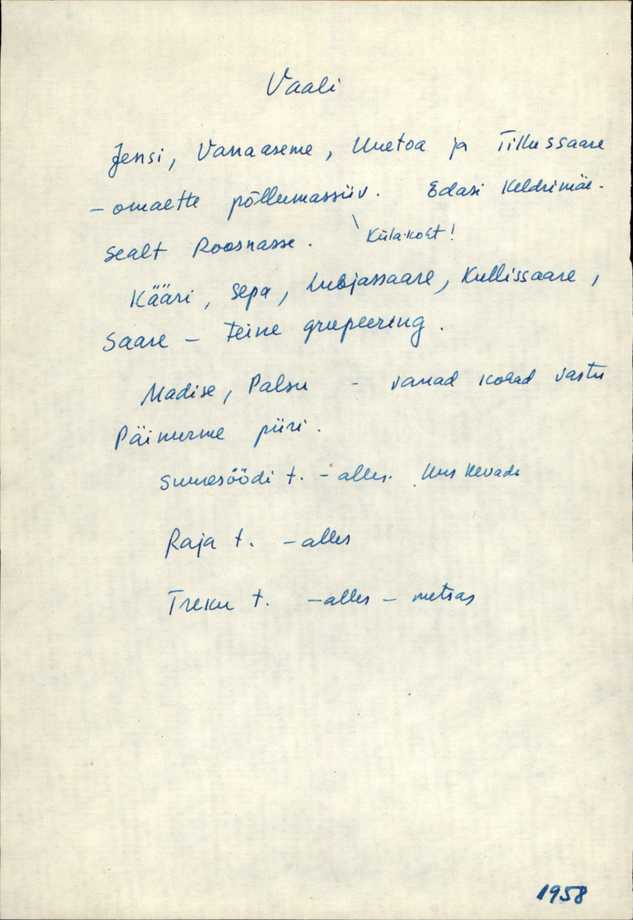 Vaali
Jensi, Vanaaseme, Uuetoa ja Tillussaare
– omaette põllumassiiv. Edasi Keldrimäe.
Sealt Roosnasse. Külakoht!
Kääri, Sepa, Lubjassaare, Kullissaare,
Saare – teine grupeering.
Madise, Palsu – vanad kohad vastu
Päinurme piiri.
Suuresöödi t. – alles. Uus Kevade
Raja t. – alles
Treku t. – alles – metsas
1958